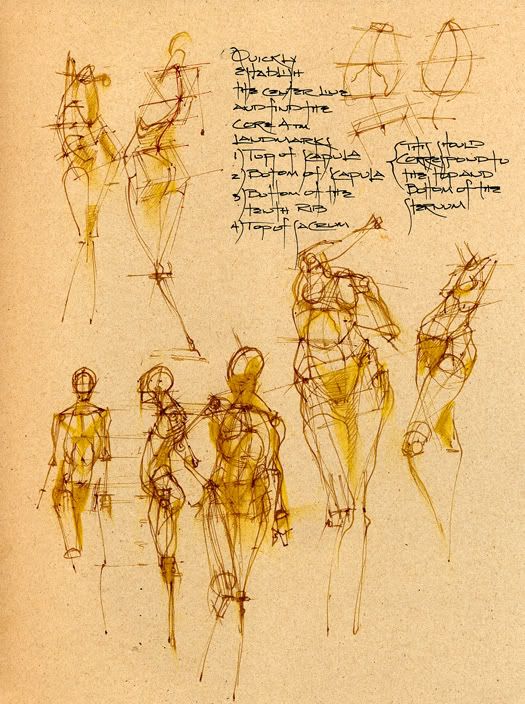 Quickly
establish
the center line
and find the
core atm
landmarks
1) Top of scapula
2) Bottom of scapula
3) Bottom of the
tenth rib
4) Top of sacrum
{ This should
correspond to
the top and
bottom of the
sternum